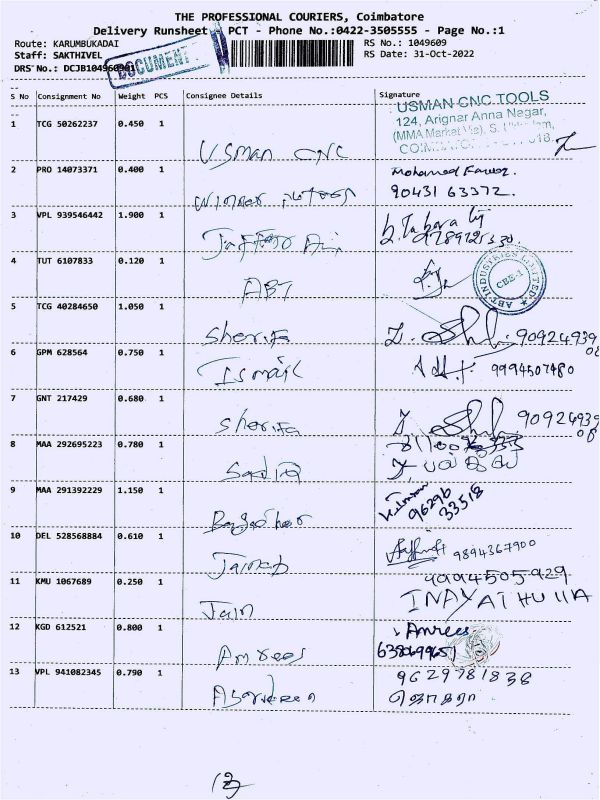 THE PROFESSIONAL COURIERS, Coimbatore
Delivery Runsheet - PCT - Phone No.:0422-3505555 - Page No.:1
Route: KARUMBUKADAI RS No.: 1049609
Staff: SAKTHIVEL RS Date: 31-Oct-2022
DRS No.: DCJB104960901
DOCUMENT
S No Consignment No Weight PCS Consignee Details Signature
USMAN CNC TOOLS
124, Arignar Anna Nagar,
1 TCG 50262237 0.450 1 Usman CNC
2 PRO 14073371 0.400 1 Mohamed
90431 63372.
3 VPL 939546442 1.900 1
4 TUT 6107833 0.120 1 ABT ABT INDUSTRIES LIMITED CBE-1
5 TCG 40284650 1.050 1 Sherifa 90924939
08
6 GPM 628564 0.750 1 Ismail 9994507480
7 GNT 217429 0.680 1 Sherifa 90924939
08
8 MAA 292695223 0.780 1 Sadiq
9 MAA 291392229 1.150 1 96296
33518
10 DEL 528568884 0.610 1 9894367900
11 KMU 1067689 0.250 1 Jain 9994505929
INAYATHULLA
12 KGD 612521 0.800 1 Amrees Amrees
13 VPL 941082345 0.790 1 9629781838